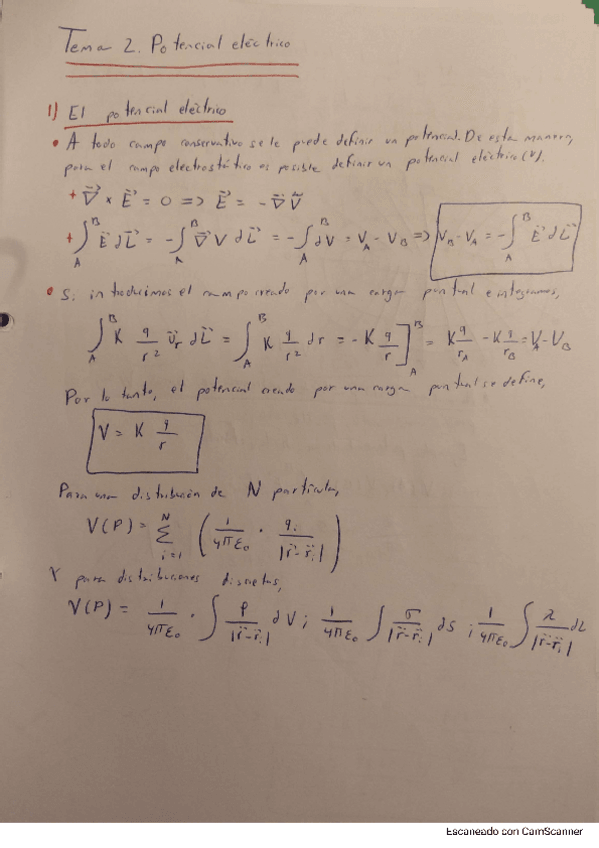 Tema 2. Potencial eléctrico
1) El potencial eléctrico
• A todo campo conservativo se le puede definir un potencial. De esta manera,
para el campo electrostático es posible definir un potencial eléctrico (V).
+ ∇⃗ × E⃗ = 0 => E⃗ = -∇⃗V⃗
+ ∫_A^B E⃗ dL⃗ = -∫_A^B ∇⃗V dL⃗ = -∫_A^B dV = V_A - V_B => V_B - V_A = -∫_A^B E⃗ dL⃗
• Si introducimos el campo creado por una carga puntual e integramos,
∫_A^B K q/r² u⃗_r dL⃗ = ∫_A^B K q/r² dr = -K q/r]_A^B = K q/r_A - K q/r_B = V_A - V_B
Por lo tanto, el potencial creado por una carga puntual se define,
V = K q/r
Para una distribución de N partículas,
V(P) = Σ_{i=1}^N (1/4πε₀ · q_i/|r⃗-r⃗_i|)
Y para distribuciones discretas,
V(P) = 1/4πε₀ · ∫ ρ/|r⃗-r⃗_i| dV ; 1/4πε₀ ∫ σ/|r⃗-r⃗_i| dS ; 1/4πε₀ ∫ λ/|r⃗-r⃗_i| dL
Escaneado con CamScanner